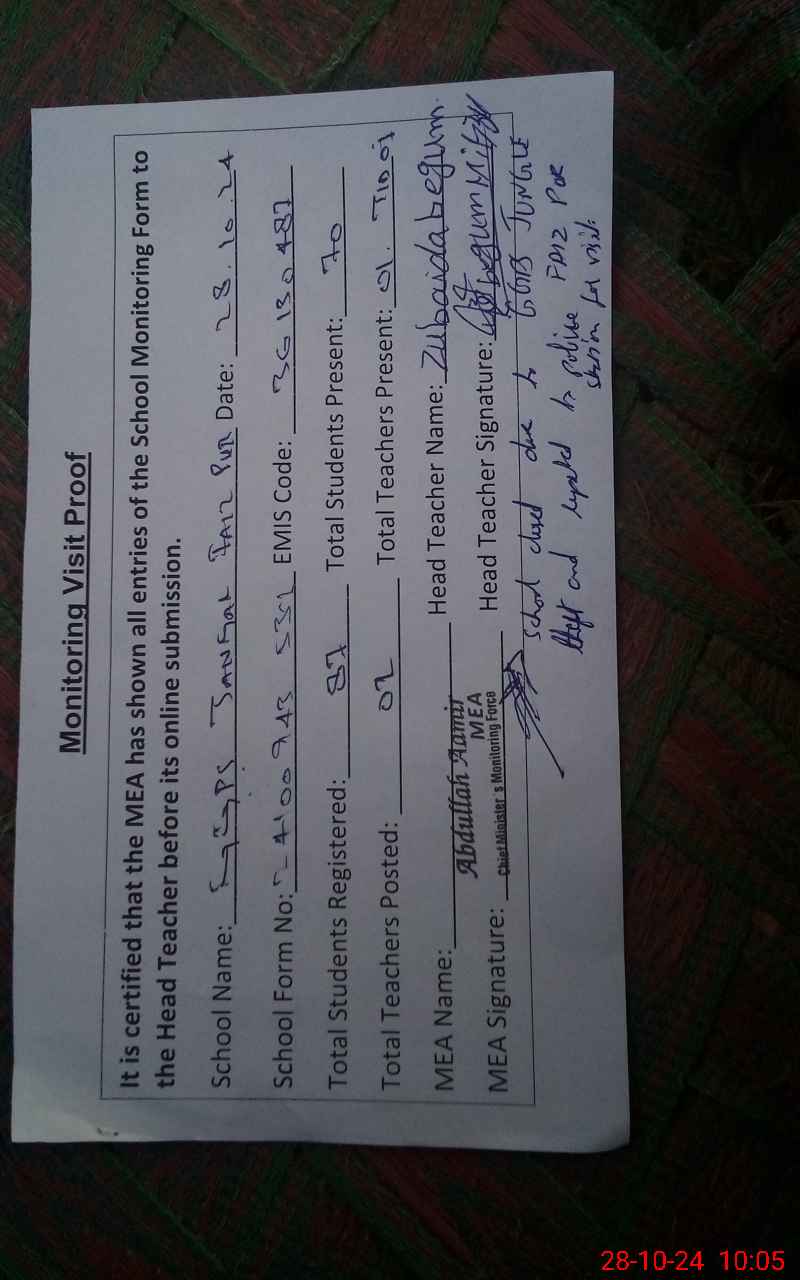 Monitoring Visit Proof
It is certified that the MEA has shown all entries of the School Monitoring Form to
the Head Teacher before its online submission.
School Name: GGPS JANGAL FAIZ PUR Date: 28.10.24
School Form No: EMIS Code:
Total Students Registered: 87 Total Students Present: 70
Total Teachers Posted: 02 Total Teachers Present: 01.
MEA Name: Abdullah Aamir Head Teacher Name: Zubaida begum.
MEA
MEA Signature: Chief Minister's Monitoring Force Head Teacher Signature:
School closed due to JUNGLE
theft and to police FAIZ PUR
station for visit.
28-10-24 10:05